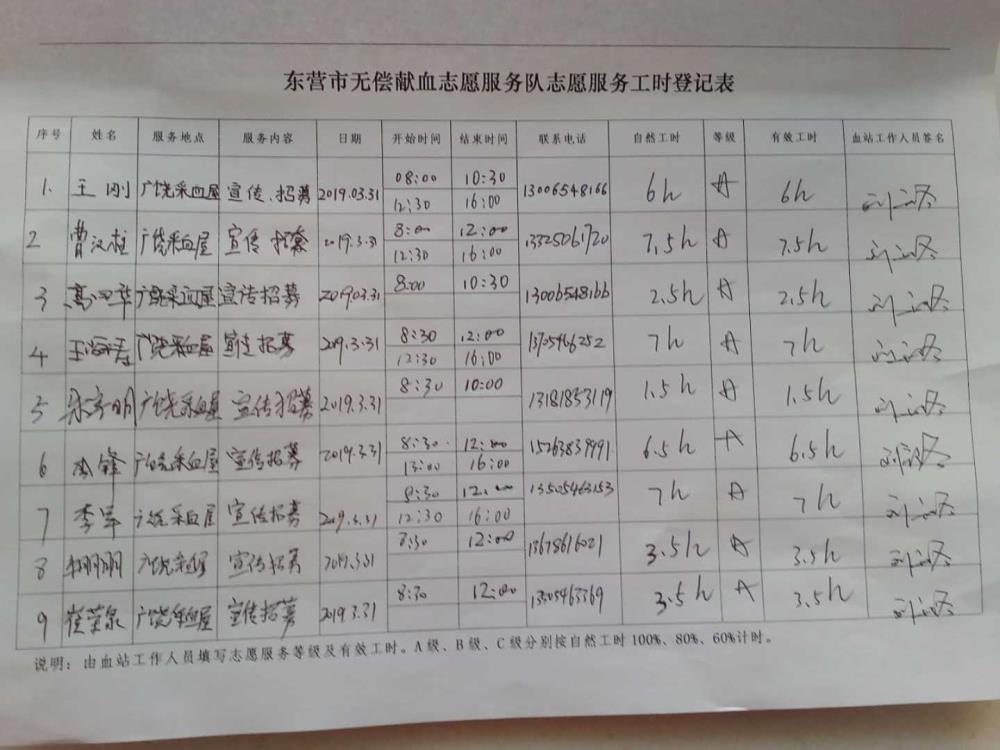 东营市无偿献血志愿服务队志愿服务工时登记表
序号 姓名 服务地点 服务内容 日期 开始时间 结束时间 联系电话 自然工时 等级 有效工时 血站工作人员签名
1. 王刚 广饶采血屋 宣传、招募 2019.03.31 08:00 10:30 13006548166 6h A 6h
12:30 16:00
2 曹汉柱 广饶采血屋 宣传 招募 2019.3.31 8:00 12:00 13325061720 7.5h A 7.5h
12:30 16:00
3 广饶采血屋 宣传招募 2019.03.31 8:00 10:30 13006548166 2.5h A 2.5h
4 王海涛 广饶采血屋 宣传招募 2019.3.31 8:30 12:00 13705466252 7h A 7h
12:30 16:00
5 广饶采血屋 宣传招募 2019.3.31 8:30 10:00 13181853119 1.5h A 1.5h
6 广饶采血屋 宣传招募 2019.3.31 8:30 12:00 15263839991 6.5h A 6.5h
13:00 16:00
7 李军 广饶采血屋 宣传招募 2019.3.31 8:30 12:00 13505463153 7h A 7h
12:30 16:00
8 广饶采血屋 宣传招募 2019.3.31 8:30 12:00 13678616021 3.5h A 3.5h
9 崔荣泉 广饶采血屋 宣传招募 2019.3.31 8:30 12:00 3.5h A 3.5h
说明：由血站工作人员填写志愿服务等级及有效工时。A级、B级、C级分别按自然工时100%、80%、60%计时。